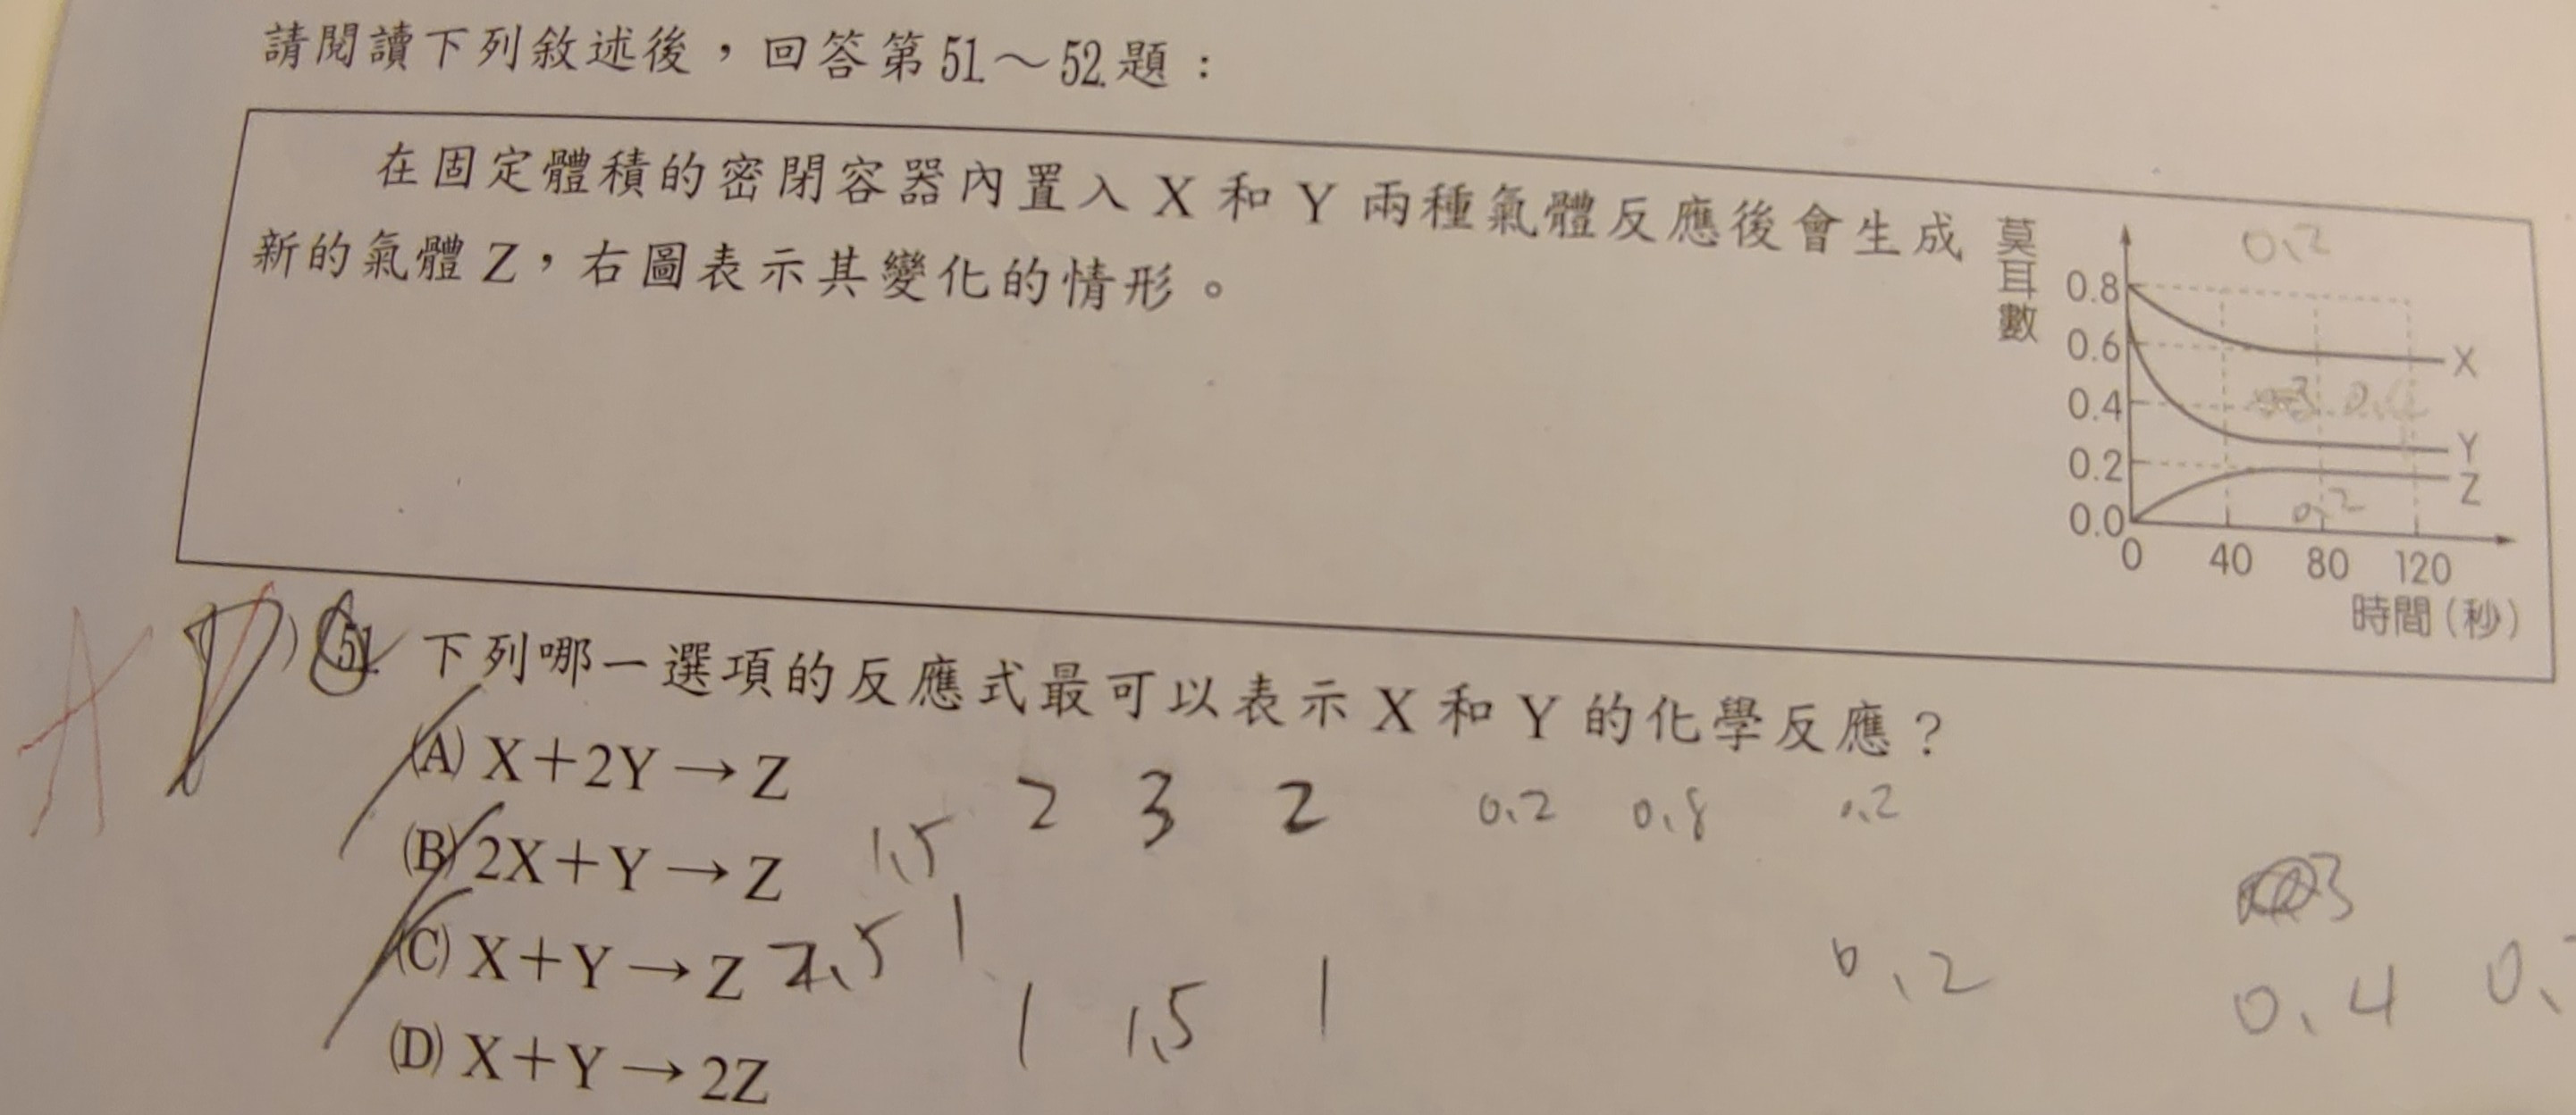 請閱讀下列敘述後，回答第51～52題：
在固定體積的密閉容器內置入 X 和 Y 兩種氣體反應後會生成
新的氣體 Z，右圖表示其變化的情形。
莫耳數
0.2
0.8
0.6
0.4
0.2
0.0
X
Y
Z
0.2
0 40 80 120
時間(秒)
A
D ) 51. 下列哪一選項的反應式最可以表示 X 和 Y 的化學反應？
(A) X＋2Y→Z
2 3 2 0.2 0.8 0.2
(B) 2X＋Y→Z
1.5
3
(C) X＋Y→Z
1
0.2 0.4 0.
1 1.5 1
(D) X＋Y→2Z